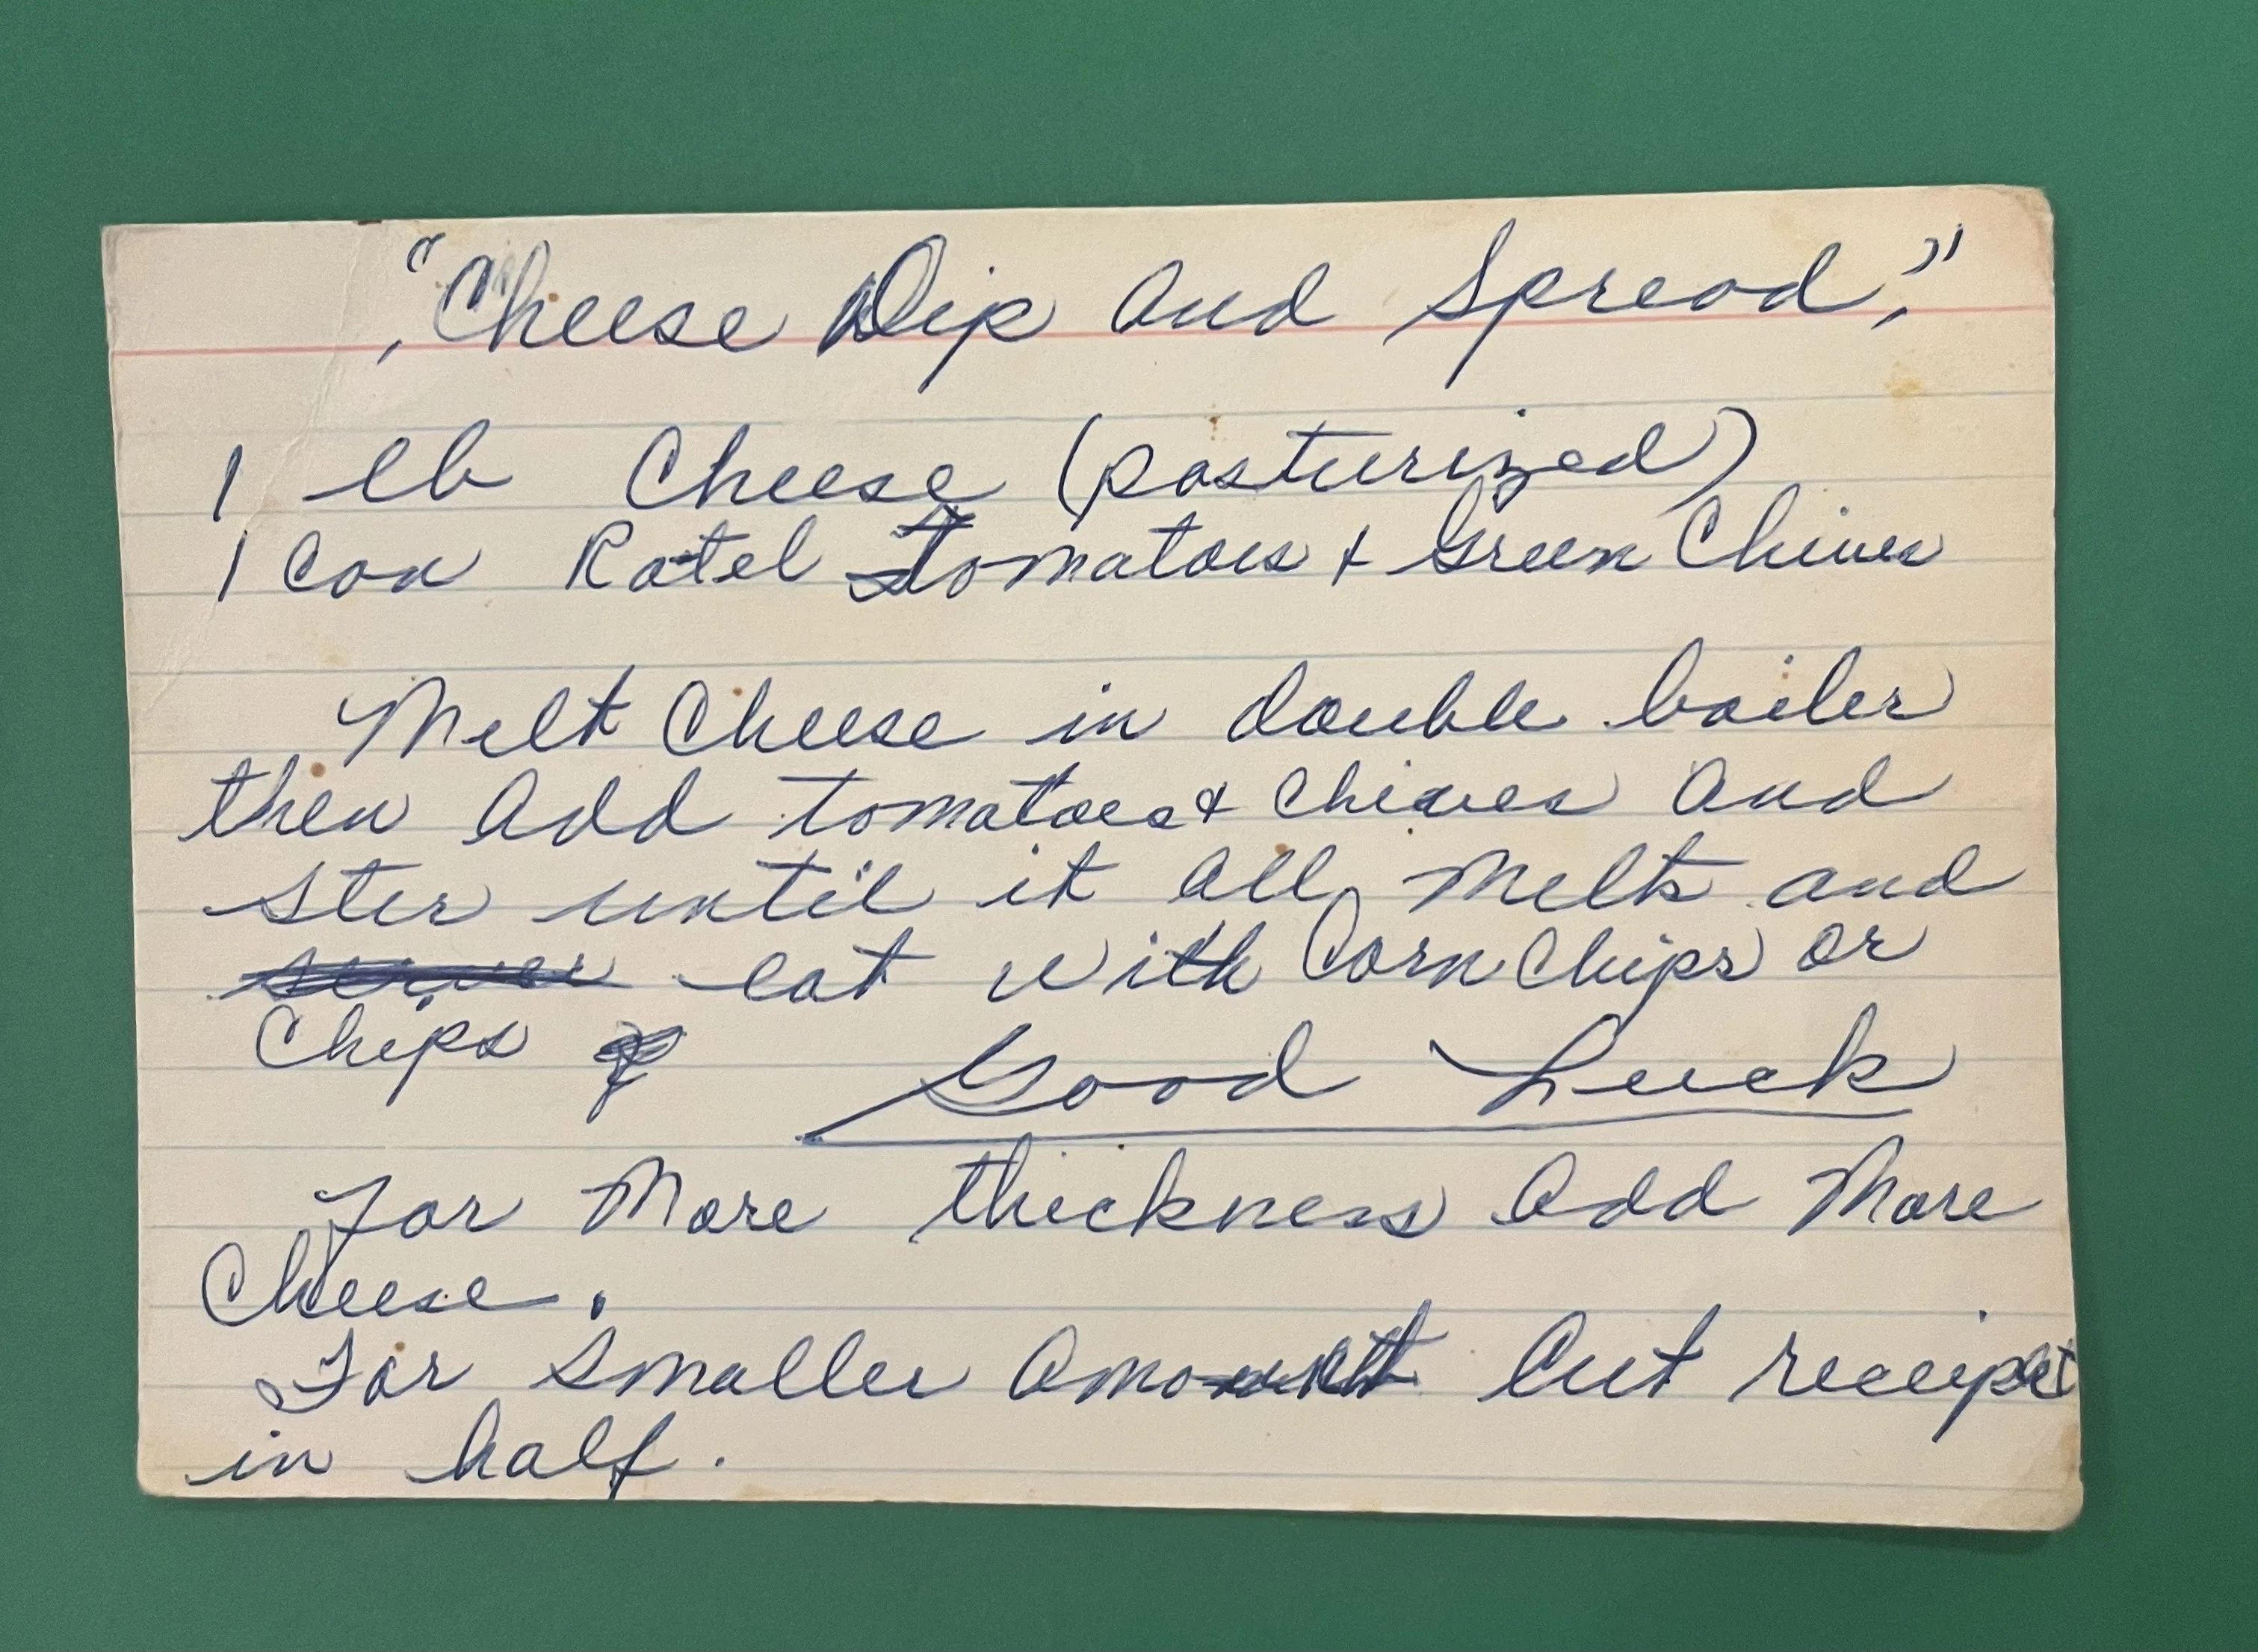 "Cheese Dip and Spread,"
1 lb Cheese (pasturized)
1 Can Rotel tomatoes + Green Chives
Melt Cheese in double boiler
then add tomatoes & Chives and
stir until it all melts and
eat with Corn Chips or
Chips
Good Luck
For More thickness add More
Cheese.
For Smaller Amount Cut receipt
in half.